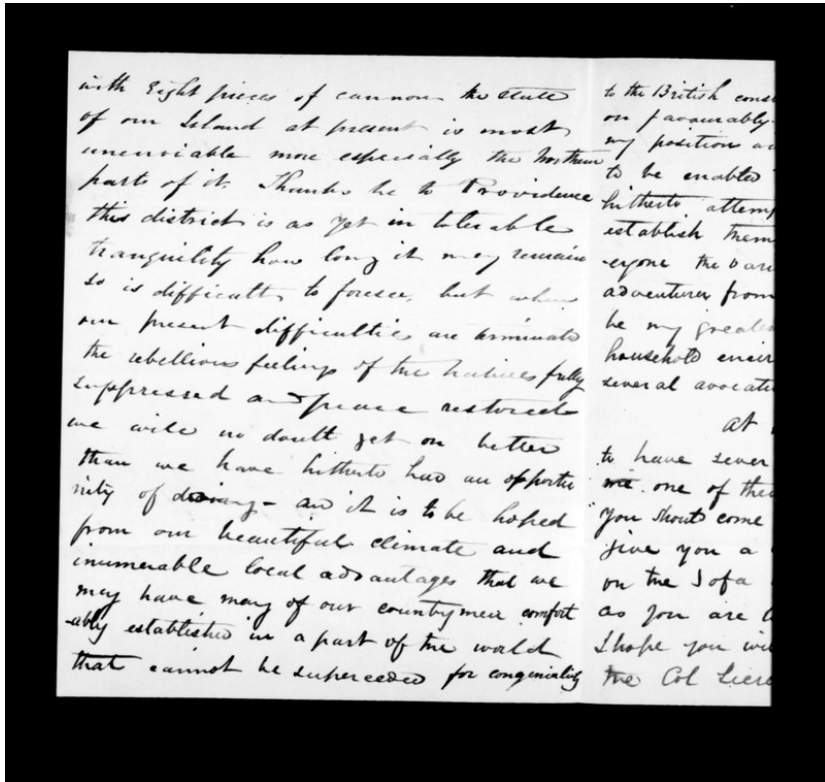 with Eight pieces of cannon the state
of our Island at present is most
unenviable more especially the Northern
parts of it. Thanks be to Providence
this district is as yet in tolerable
tranquility how long it may remain
so is difficult to foresee, but when
our present difficulties are terminated
the rebellious feelings of the natives fully
suppressed and peace restored
we will no doubt get on better
than we have hitherto had an opportu
nity of doing - and it is to be hoped
from our beautiful climate and
inumerable local advantages that we
may have many of our countrymen comfort
-ably established in a part of the world
that cannot be superceeded for congeniality
to the British cons
on favourably
my position
to be enabled
hitherto attemp
establish them
-eyone the
adventurer from
be my greates
household
several avocati
at
to have sever
me one of the
you shout come
give you a
on the Sofa
as you are
I hope you wi
the Col